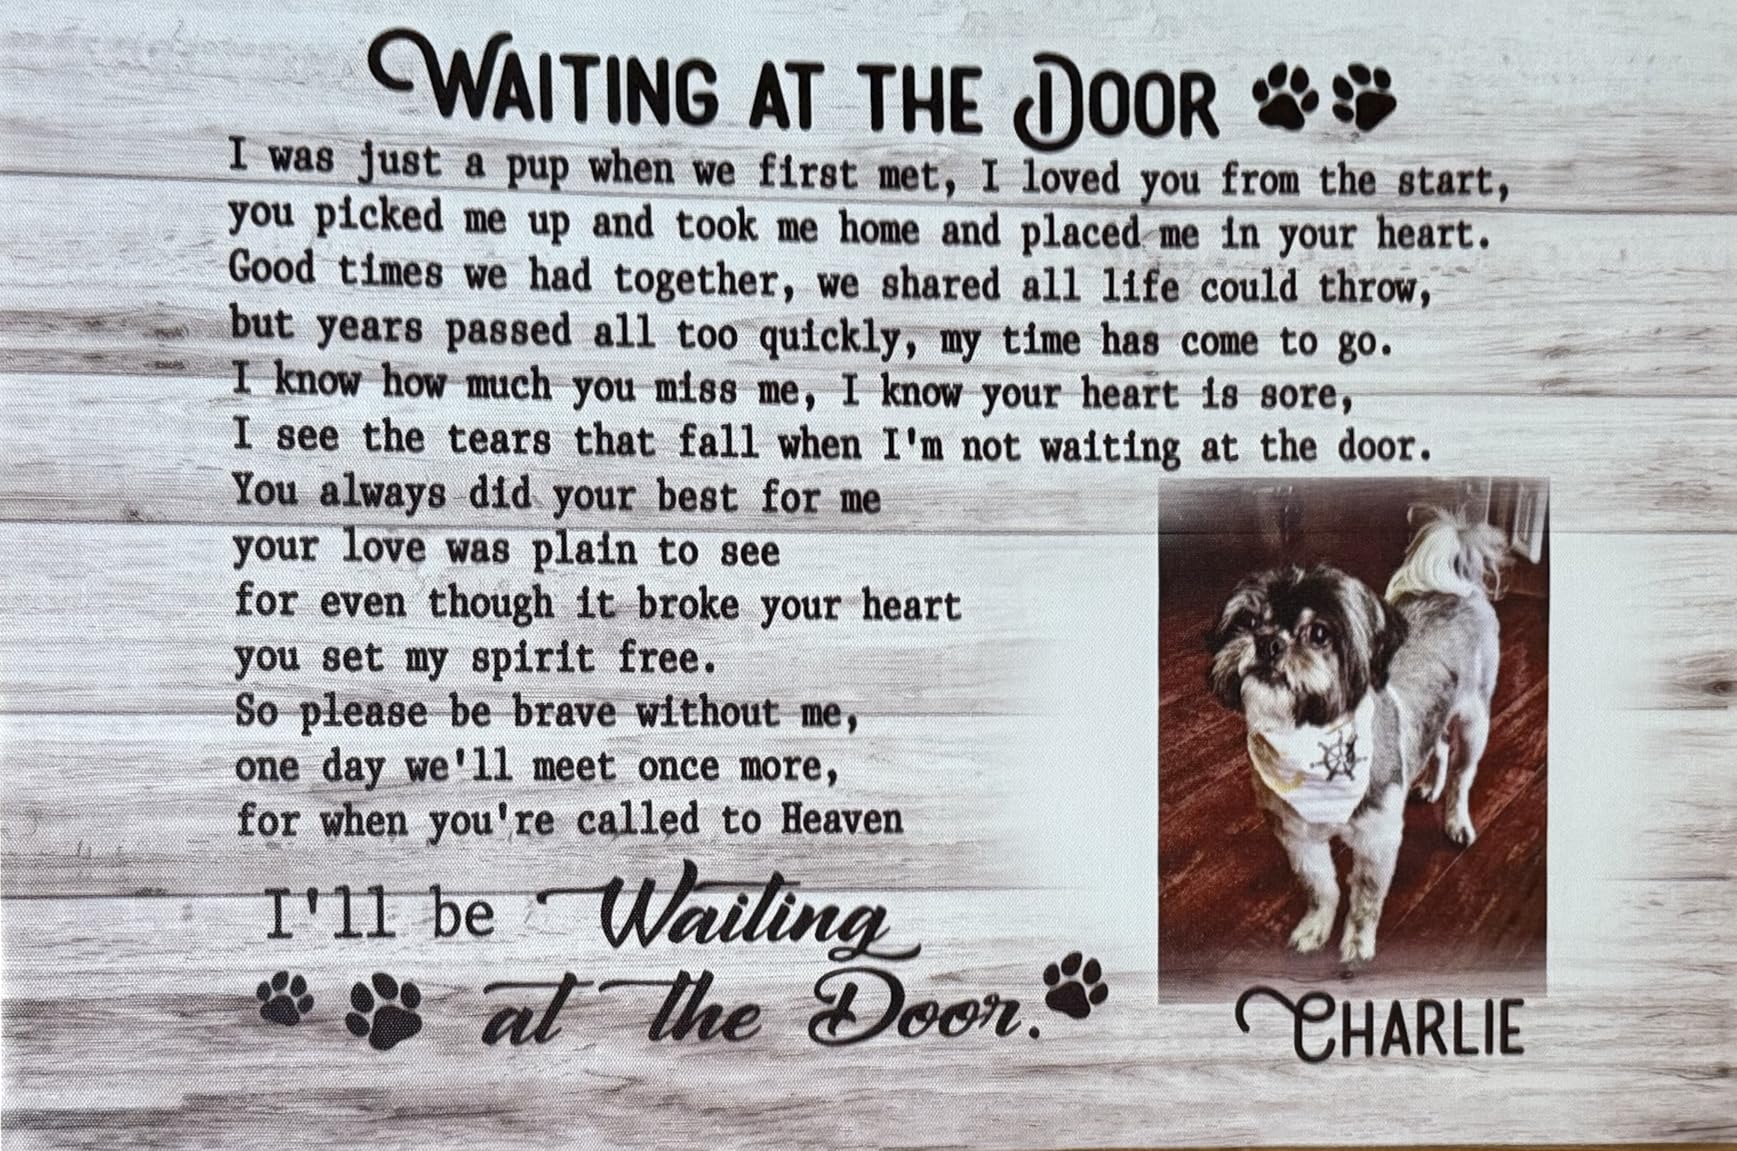 WAITING AT THE DOOR
I was just a pup when we first met, I loved you from the start,
you picked me up and took me home and placed me in your heart.
Good times we had together, we shared all life could throw,
but years passed all too quickly, my time has come to go.
I know how much you miss me, I know your heart is sore,
I see the tears that fall when I'm not waiting at the door.
You always did your best for me
your love was plain to see
for even though it broke your heart
you set my spirit free.
So please be brave without me,
one day we'll meet once more,
for when you're called to Heaven
I'll be Waiting
at the Door.
CHARLIE